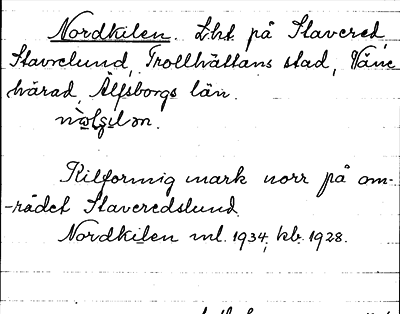 Nordkilen. Lht på Stavered,
Stavrelund, Trollhättans stad, Väne
härad, Älfsborgs län.
Kilformig mark norr på om-
-rådet Staveredslund
Nordkilen ml. 1934, kb. 1928.